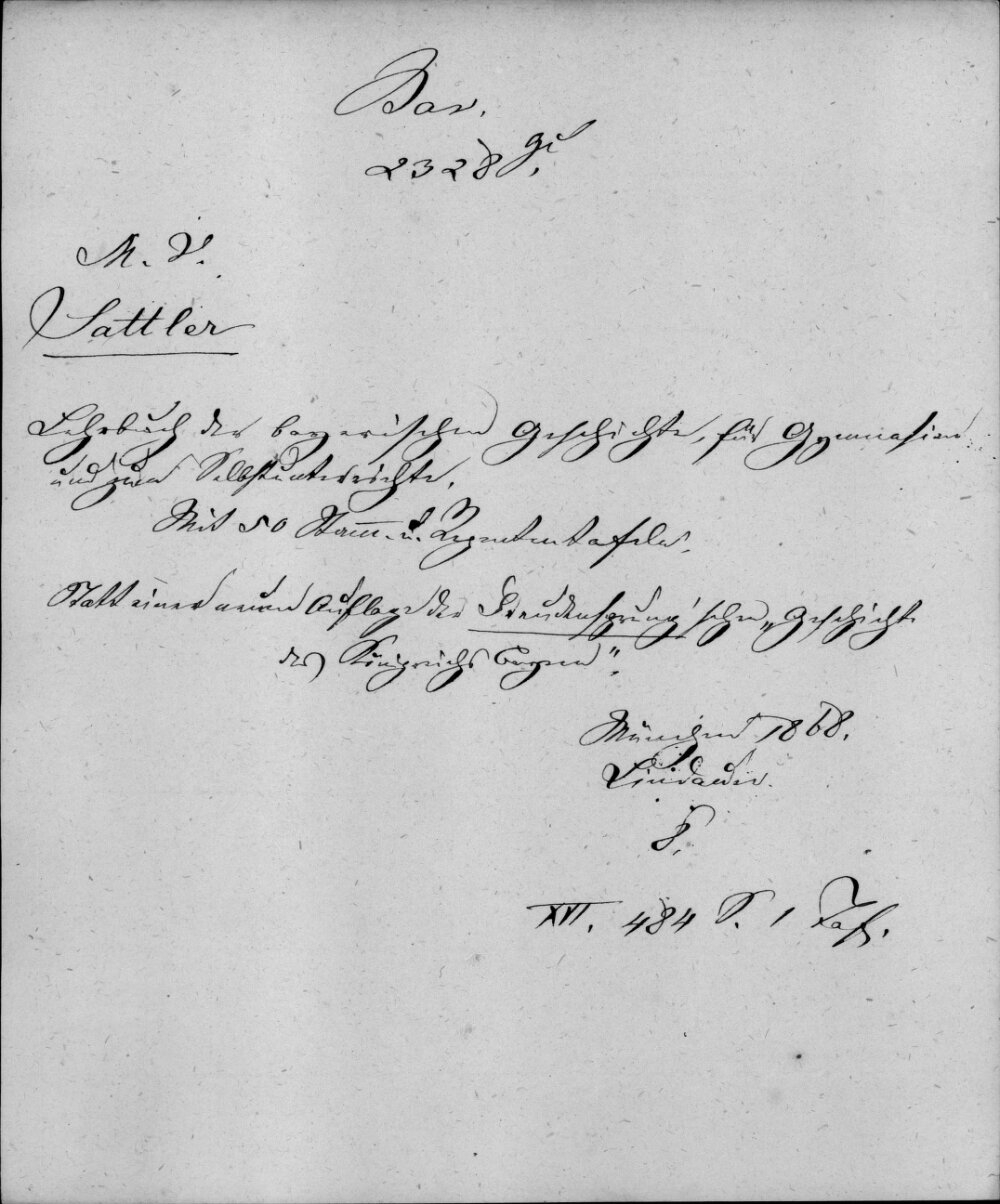 Bav.
2328 gi.
M. V.
Sattler
Lehrbuch der bayerischen Geschichte, für Gymnasien
und zum Selbstunterrichte.
Mit 50 Stamm- u. Regententafeln.
Statt einer neuen Auflage der Freudensprung'schen „Geschichte
des Königreichs Bayern“.
München 1868.
Lindauer.
8.
XVI. 484 S. 1 Taf.